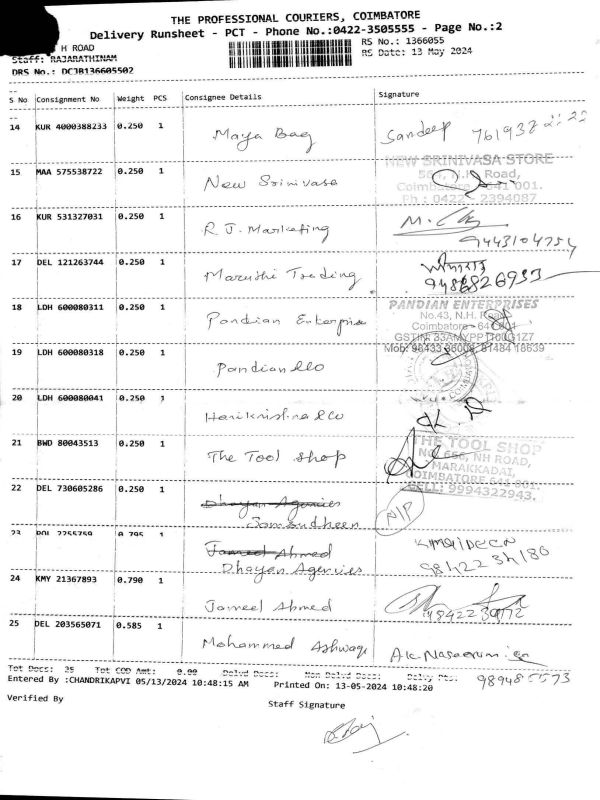 THE PROFESSIONAL COURIERS, COIMBATORE
Delivery Runsheet - PCT - Phone No.:0422-3505555 - Page No.:2
H ROAD
RS No.: 1366055
Staff: RAJARATHINAM
RS Date: 13 May 2024
DRS No.: DCJB136605502
S No Consignment No Weight PCS Consignee Details Signature
14 KUR 4000388233 0.250 1 Maya Bag Sandeep
15 MAA 575538722 0.250 1 New Srinivasa
NEW SRINIVASA STORE
Road,
Ph : 0422 - 2394087
16 KUR 531327031 0.250 1 R J. Marketing
9443104754
17 DEL 121263744 0.250 1 Maruthi Trading
18 LDH 600080311 0.250 1 Pandian Enterprise
PANDIAN ENTERPRISES
No.43, N.H. Road
Coimbatore - 641 001
19 LDH 600080318 0.250 1 Pandian &co
20 LDH 600080041 0.250 1 Harikrishna &co
21 BWD 80043513 0.250 1 The Tool shop
THE TOOL SHOP
NH ROAD,
MARAKKADAI,
COIMBATORE 641 001.
CELL: 9994322943.
22 DEL 730605286 0.250 1 Dhayan Agencies
N/P
23 0.795 1 Jameel Ahmed
Dhayan Agencies
24 KMY 21367893 0.790 1 Jameel Ahmed
25 DEL 203565071 0.585 1 Mohammed
Tot Docs: 25 Tot COD Amt: 0.00 Delvd Docs: Non Delvd Docs: Delvy Pts:
Entered By :CHANDRIKAPVI 05/13/2024 10:48:15 AM Printed On: 13-05-2024 10:48:20
Verified By
Staff Signature